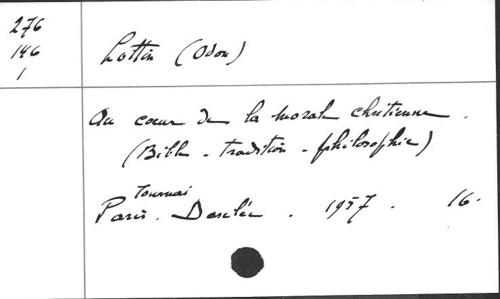 276
146
1
Lottin (Odon)
Au cœur de la morale chrétienne.
(Bible - tradition - philosophie)
Tournai
Paris. Desclée. 1957. 16.